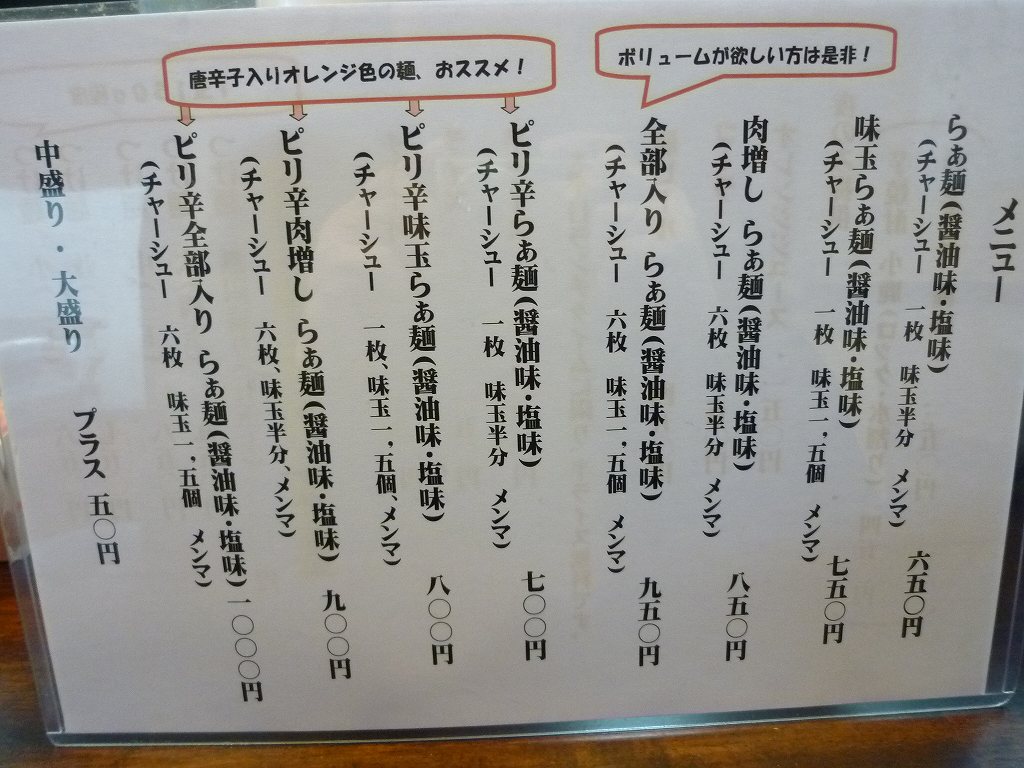 メニュー
らぁ麺(醤油味・塩味)
(チャーシュー 一枚 味玉半分 メンマ) 六五〇円
味玉らぁ麺(醤油味・塩味)
(チャーシュー 一枚 味玉一,五個 メンマ) 七五〇円
肉増し らぁ麺(醤油味・塩味)
(チャーシュー 六枚 味玉半分 メンマ) 八五〇円
ボリュームが欲しい方は是非!
全部入り らぁ麺(醤油味・塩味)
(チャーシュー 六枚 味玉一,五個 メンマ) 九五〇円
唐辛子入りオレンジ色の麺、おススメ!
ピリ辛らぁ麺(醤油味・塩味)
(チャーシュー 一枚 味玉半分 メンマ) 七〇〇円
ピリ辛味玉らぁ麺(醤油味・塩味)
(チャーシュー 一枚、味玉一,五個、メンマ) 八〇〇円
ピリ辛肉増し らぁ麺(醤油味・塩味)
(チャーシュー 六枚、味玉半分、メンマ) 九〇〇円
ピリ辛全部入り らぁ麺(醤油味・塩味)一〇〇〇円
(チャーシュー 六枚 味玉一,五個 メンマ)
中盛り・大盛り プラス 五〇円